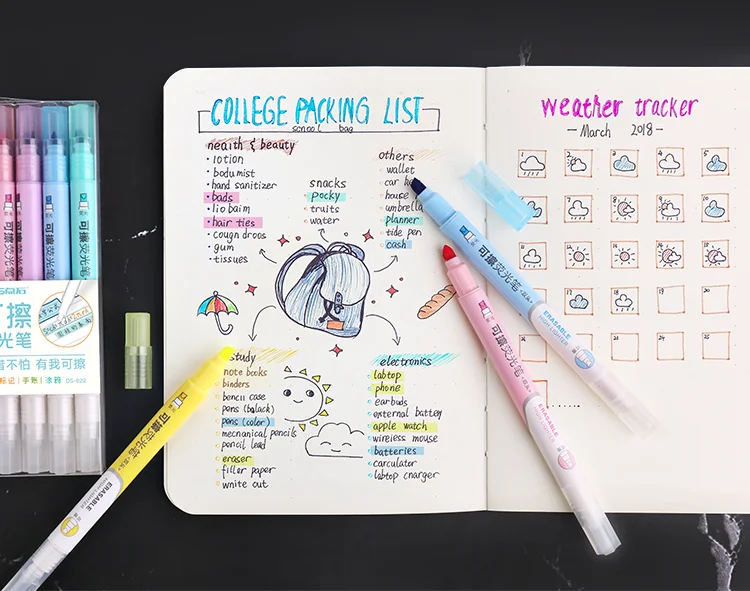 COLLEGE PACKING LIST
school bag
health & beauty
lotion
bodu mist
hand sanitizer
bads
lio baim
hair ties
cough droos
gum
tissues
snacks
pocky
truits
water
others
wallet
car
house
umbrella
planner
tide pen
cash
study
note books
binders
pencil case
pens (balack)
pens (color)
mecnanical pencils
pencil lead
eraser
filler paper
wnite out
electronics
labtop
phone
earbuds
external battey
apple watch
wireless mouse
batteries
carculator
labtop cnarger
Weather tracker
- March 2018 -
1
2
3
4
5
可擦荧光笔
ERASABLE
HIGH LIGHTER
可擦荧光笔
ERASABLE
可擦荧光笔
ERASABLE
可擦荧光笔
可擦荧光笔
可擦荧光笔
点石
可擦
光笔
错不怕 有我可擦
标记 | 手账 | 涂鸦 DS-922